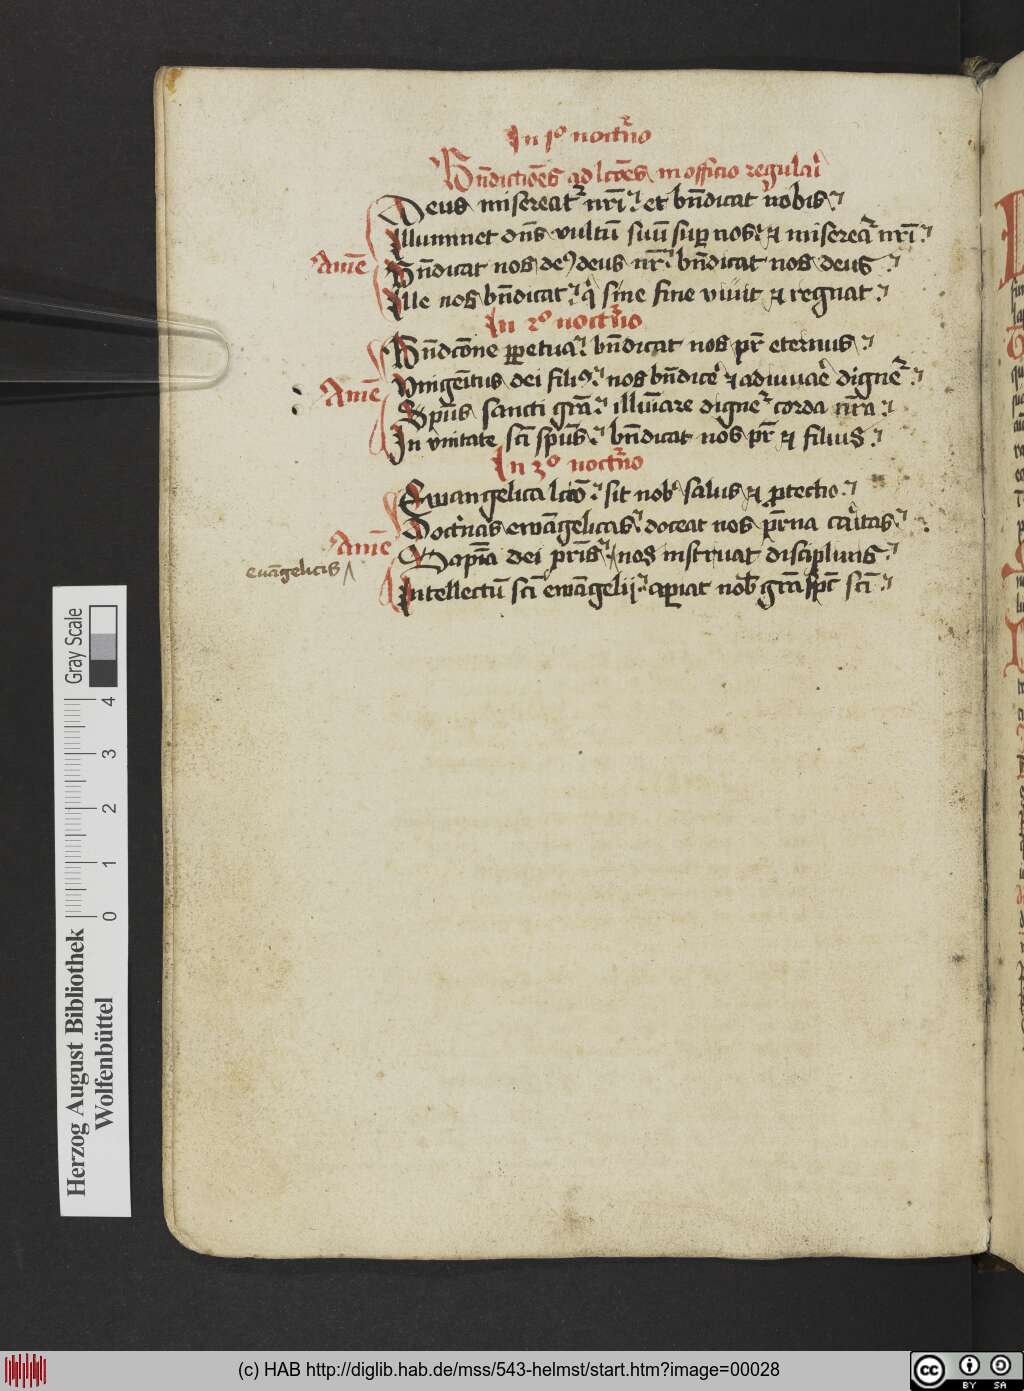 In 1º noctꝰno
Bn̄dictiōes ad lc̄oēs in officio regulaꝛi
Deus misereatr nr̄i et bn̄dicat nobis
Illuminet dn̄s vultū suū suꝑ nos ⁊ misereat nr̄i
Amē
Bn̄dicat nos deꝰ deus nr̄ bn̄dicat nos deus
Ille nos bn̄dicat qͥ sine fine viuit ⁊ regnat
In 2º noctꝰno
Bn̄dcōne ꝑpetua bn̄dicat nos pr̄ eternus
Vnigēitus dei filiꝰ nos bn̄dicē ⁊ adiuuaē dignetr
Amē
Spūs sancti grā illūiare dignetr corda nr̄a
In vnitate scī spūs bn̄dicat nos pr̄ ⁊ filius
In 3º noctꝰno
Ewangelica lcō sit nobꝭ salus ⁊ ꝓtectio
Doctⁱnas ewāgelicas doceat nos pr̄na caꝛitas
Amē
Sapīa dei pr̄is nos instruat disciplinis
euāgelicis
Intellectū scī ewāgelij apiat nob̄ grā spūs scī
Gray Scale
0 1 2 3 4
Herzog August Bibliothek
Wolfenbüttel
(c) HAB http://diglib.hab.de/mss/543-helmst/start.htm?image=00028
cc BY SA